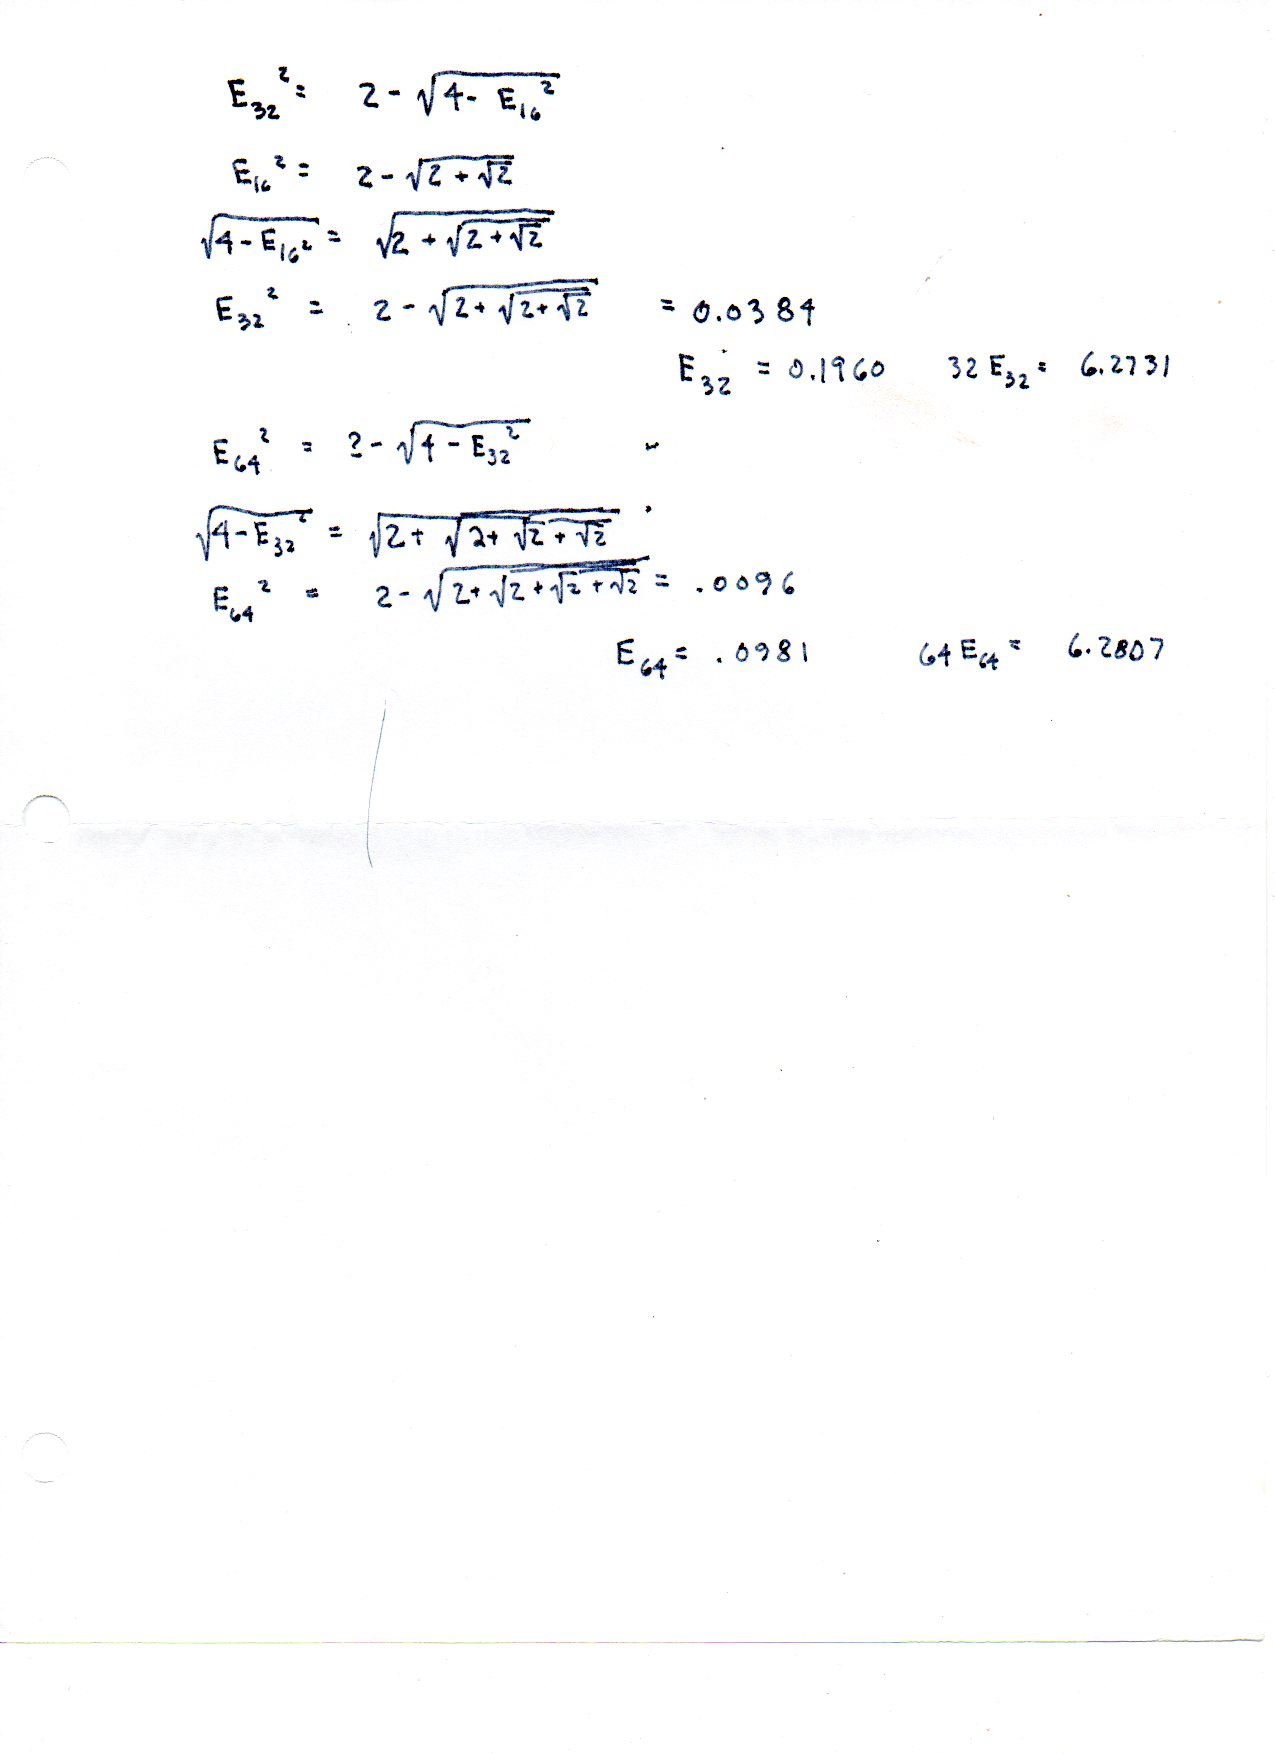 E₃₂² = 2 - √(4 - E₁₆²)
E₁₆² = 2 - √(2 + √2)
√(4 - E₁₆²) = √(2 + √(2 + √2))
E₃₂² = 2 - √(2 + √(2 + √2)) = 0.0384
E₃₂ = 0.1960 32 E₃₂ = 6.2731
E₆₄² = 2 - √(4 - E₃₂²)
√(4 - E₃₂²) = √(2 + √(2 + √2 + √2))
E₆₄² = 2 - √(2 + √(2 + √2 + √2)) = .0096
E₆₄ = .0981 64 E₆₄ = 6.2807